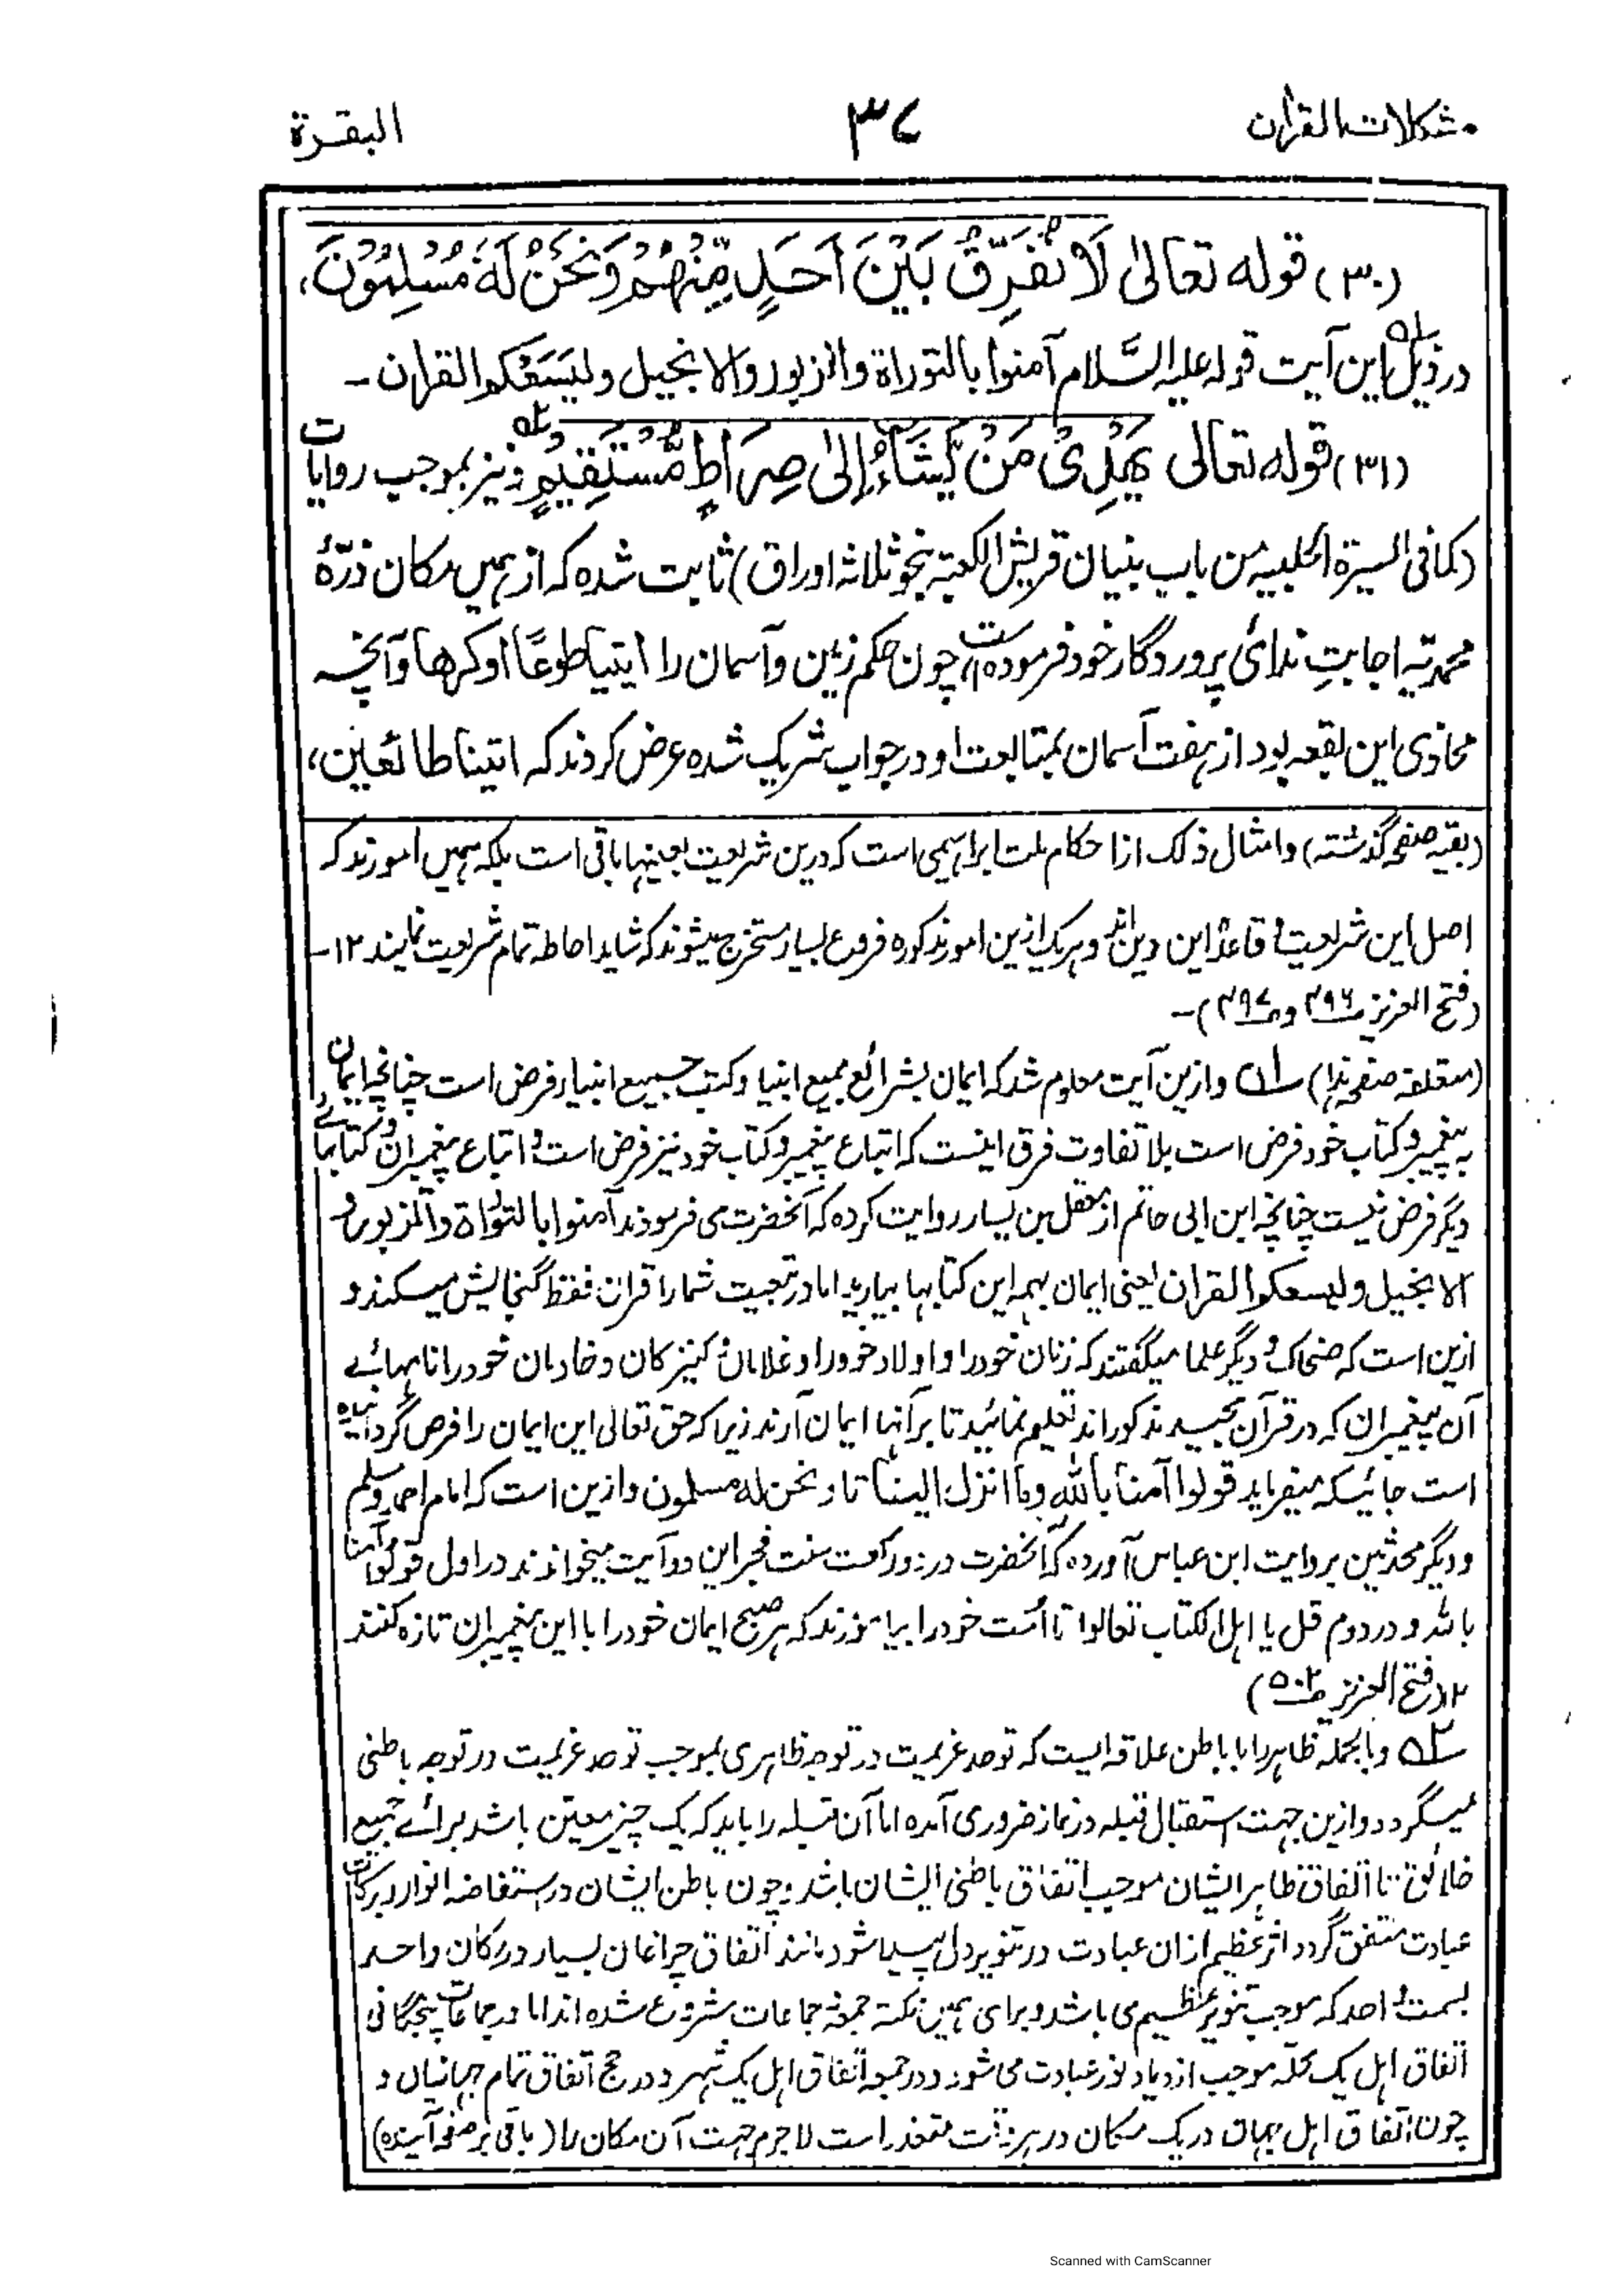 مشکلات القرآن ۳۷ البقرة
(۳۰) قوله تعالیٰ لَا نُفَرِّقُ بَيْنَ اَحَدٍ مِّنْهُمْ وَنَحْنُ لَهٗ مُسْلِمُوْنَ،
در ذیل این آیت قوله علیه السَّلام آمنوا بالتوراة والزبور والانجیل ولیَسَعْکم القرآن ـ
(۳۱) قوله تعالی یَهْدِیْ مَنْ یَّشَآءُ اِلیٰ صِرَاطٍ مُّسْتَقِیْمٍ ونیز بموجب روایات
(کمافی السیرة الحلبیه من باب بنیان قریش الکعبة بنحو ثلاثه اوراق) ثابت شده که از همیں مکان ذرّهٔ
محمدیّه اجابتِ ندائ پروردگار خود فرموده است، چون حکم زمین وآسمان را ایتیا طوعًا اوکرها وآنچه
محاذی این بقعه بود از هفت آسمان بمتابعت او در جواب شریک شده عرض کردند که اتینا طائعین،
(بقیه صفحه گذشته) وامثال ذلک از احکام ملت ابراهیمی است که درین شریعت بعینها باقی است بلکه همیں امورند که
اصل این شریعت و قاعدهٔ این دین اند و هریک ازین امور مذکوره فروع بسیار مستخرج میشوند که شاید احاطه تمام شریعت نمایند ۱۲ـ
(فتح العزیز ص ۴۹۶ و ص ۴۹۷)ـ
(متعلقه صفحه هذا) ۱ه وازین آیت معلوم شد که ایمان بشرائع جمیع انبیا وکتب جمیع انبیاء فرض است چنانچه ایمان
به پیغمبر و کتاب خود فرض است بلا تفاوت فرق اینست که اتباع پیغمبر و کتاب خود نیز فرض است و اتباع پیغمبران و کتابهائے
دیگر فرض نیست چنانچه ابن ابی حاتم از معقل بن یسار روایت کرده که آنحضرت می فرمودند آمنوا بالتوراة والزبور و
الانجیل ولیسعکم القرآن یعنی ایمان بهمه این کتابها بیارید اما در تبعیت شما را قرآن فقط گنجایش میکند و
ازین است که ضحاک و دیگر علما میگفتند که زنان خود را و اولاد خود را و غلامان و کنیزکان و خادمان خود را نامهائے
آن پیغمبران که در قرآن مجید مذکور اند تعلیم نمائید تا بر آنها ایمان آرند زیرا که حق تعالی این ایمان را فرض گردانیده
است جائیکه میفرماید قولوا آمنا بالله وما انزل الینا تا و نحن له مسلمون وازین است که امام احمد و مسلم
و دیگر محدثین بروایت ابن عباس آورده که آنحضرت در دو رکعت سنت فجر این دو آیت میخواندند در اول قولوا آمنا
بالله و در دوم قل یا اهل الکتاب تعالوا تا امت خود را بیاموزند که هر صبح ایمان خود را با این پیغمبران تازه کنند
۱۲ (فتح العزیز ص ۵۰۲)
۲ه وبالجمله ظاهر را با باطن علاقه ایست که توحد عزیمت در توجه ظاهری بموجب توحد عزیمت در توجه باطنی
میگردد وازین جهت استقبال قبله در نماز ضروری آمده اما آن قبله را باید که یک چیز معین باشد برائے جمیع
خلائق تا اتفاق ظاهر ایشان موجب اتفاق باطنی ایشان باشد و چون باطن ایشان در استفاضه انوار و برکات
عبادت متفق گردد اثر عظیم ازان عبادت در تنویر دل پیدا شود مانند اتفاق چراغان بسیار در مکان واحد
بسمت واحد که موجب تنویر عظیم می باشد و برای همین نکته جمعه جماعات مشروع شده اند اما در جماعات پنجگانی
اتفاق اهل یک محله موجب ازدیاد نور عبادت می شود و در جمعه اتفاق اهل یک شهر و در حج اتفاق تمام جهانیان و
چون اتفاق اهل جهان در یک مکان در هر وقت متعذر است لاجرم جهت آن مکان را (باقی بر صفحه آینده)
Scanned with CamScanner